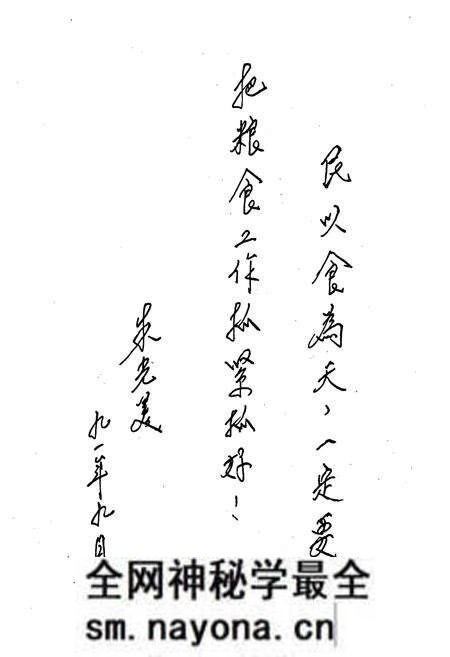 民以食為天，一定要
把粮食工作抓紧抓好！
朱光美
九一年九月
全网神秘学最全
sm.nayona.cn